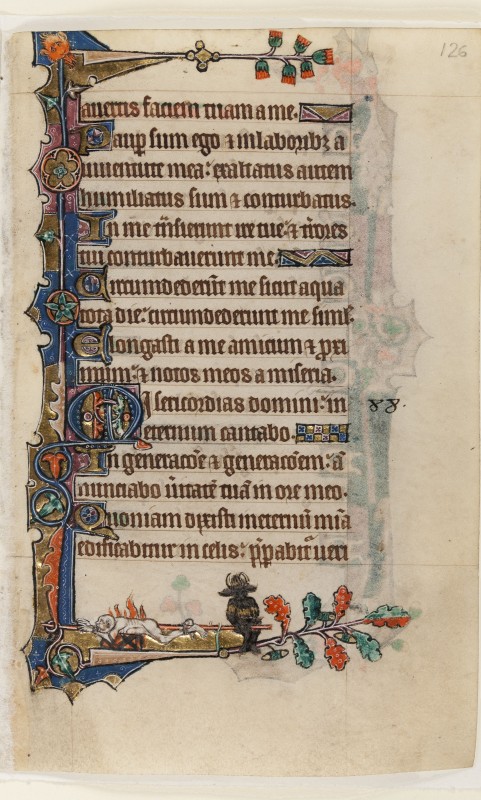 126
avertis faciem tuam a me.
Paup sum ego ⁊ in laboribꝫ a
iuventute mea: exaltatus autem
humiliatus sum ⁊ conturbatus.
In me tͣnsierunt ire tue: ⁊ tͬrores
tui conturbaverunt me.
Circumdederūt me sicut aqua
tota die: circumdederunt me simł.
Elongasti a me amicum ⁊ ꝓxi
mum: ⁊ notos meos a miseria.
Misericordias domini: in
eternum cantabo.
88.
In generacōe ⁊ generacōem: ā
nunciabo v̄itatē tuā in ore meo.
Quoniam dixisti ineternū mīa
edificabitur in celis: p̄pabit͛ veri